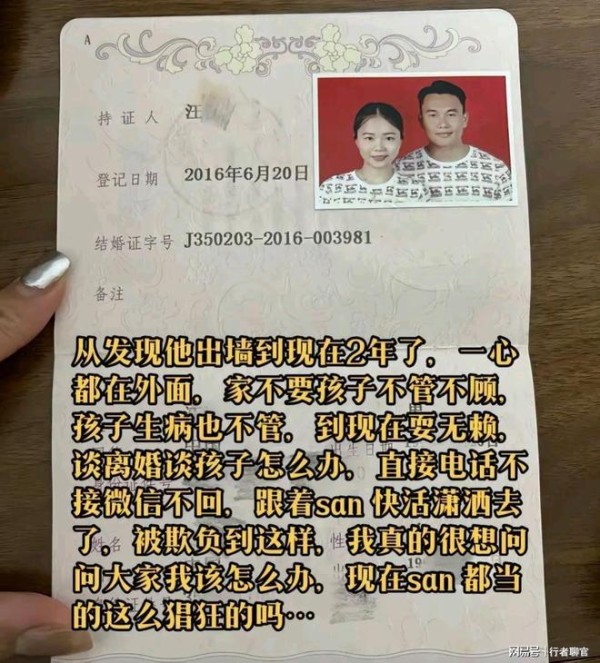 A
持证人 汪
登记日期 2016年6月20日
结婚证字号 J350203-2016-003981
备注
从发现他出墙到现在2年了，一心
都在外面，家不要孩子不管不顾，
孩子生病也不管，到现在耍无赖，
谈离婚谈孩子怎么办，直接电话不
接微信不回，跟着san 快活潇洒去
了，被欺负到这样，我真的很想问
问大家我该怎么办，现在san 都当
的这么猖狂的吗…
姓名
性
19
搜狐号@行者聊官